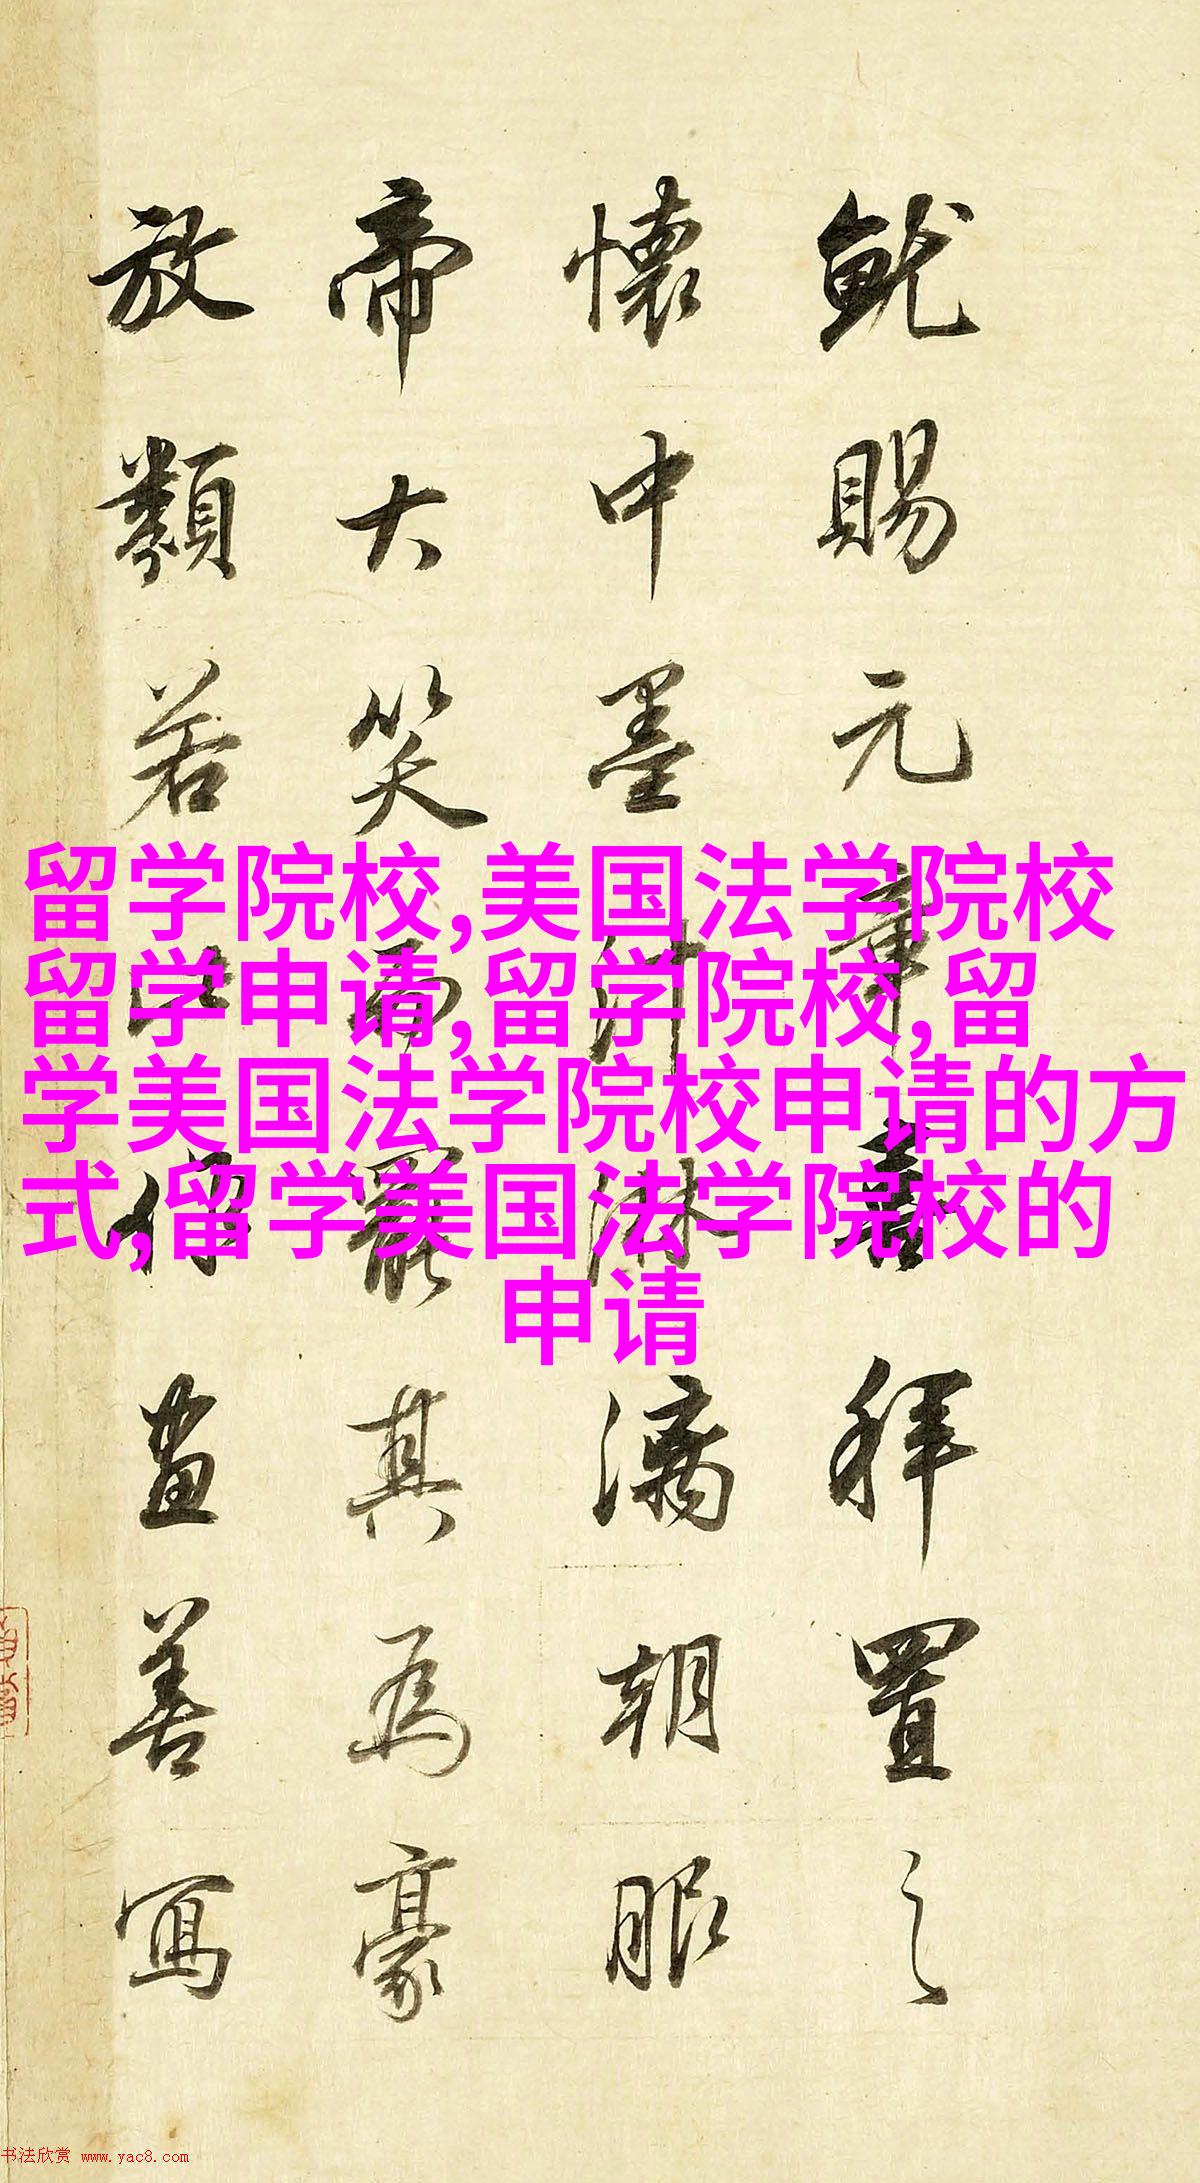 就賜元章喜拜置之
懷中墨汁淋漓朝服
帝大笑而罷其為豪
放類若此畫善寫
留学院校,美国法学院校
留学申请,留学院校,留
学美国法学院校申请的方
式,留学美国法学院校的
申请
书法欣赏 www.yac8.com